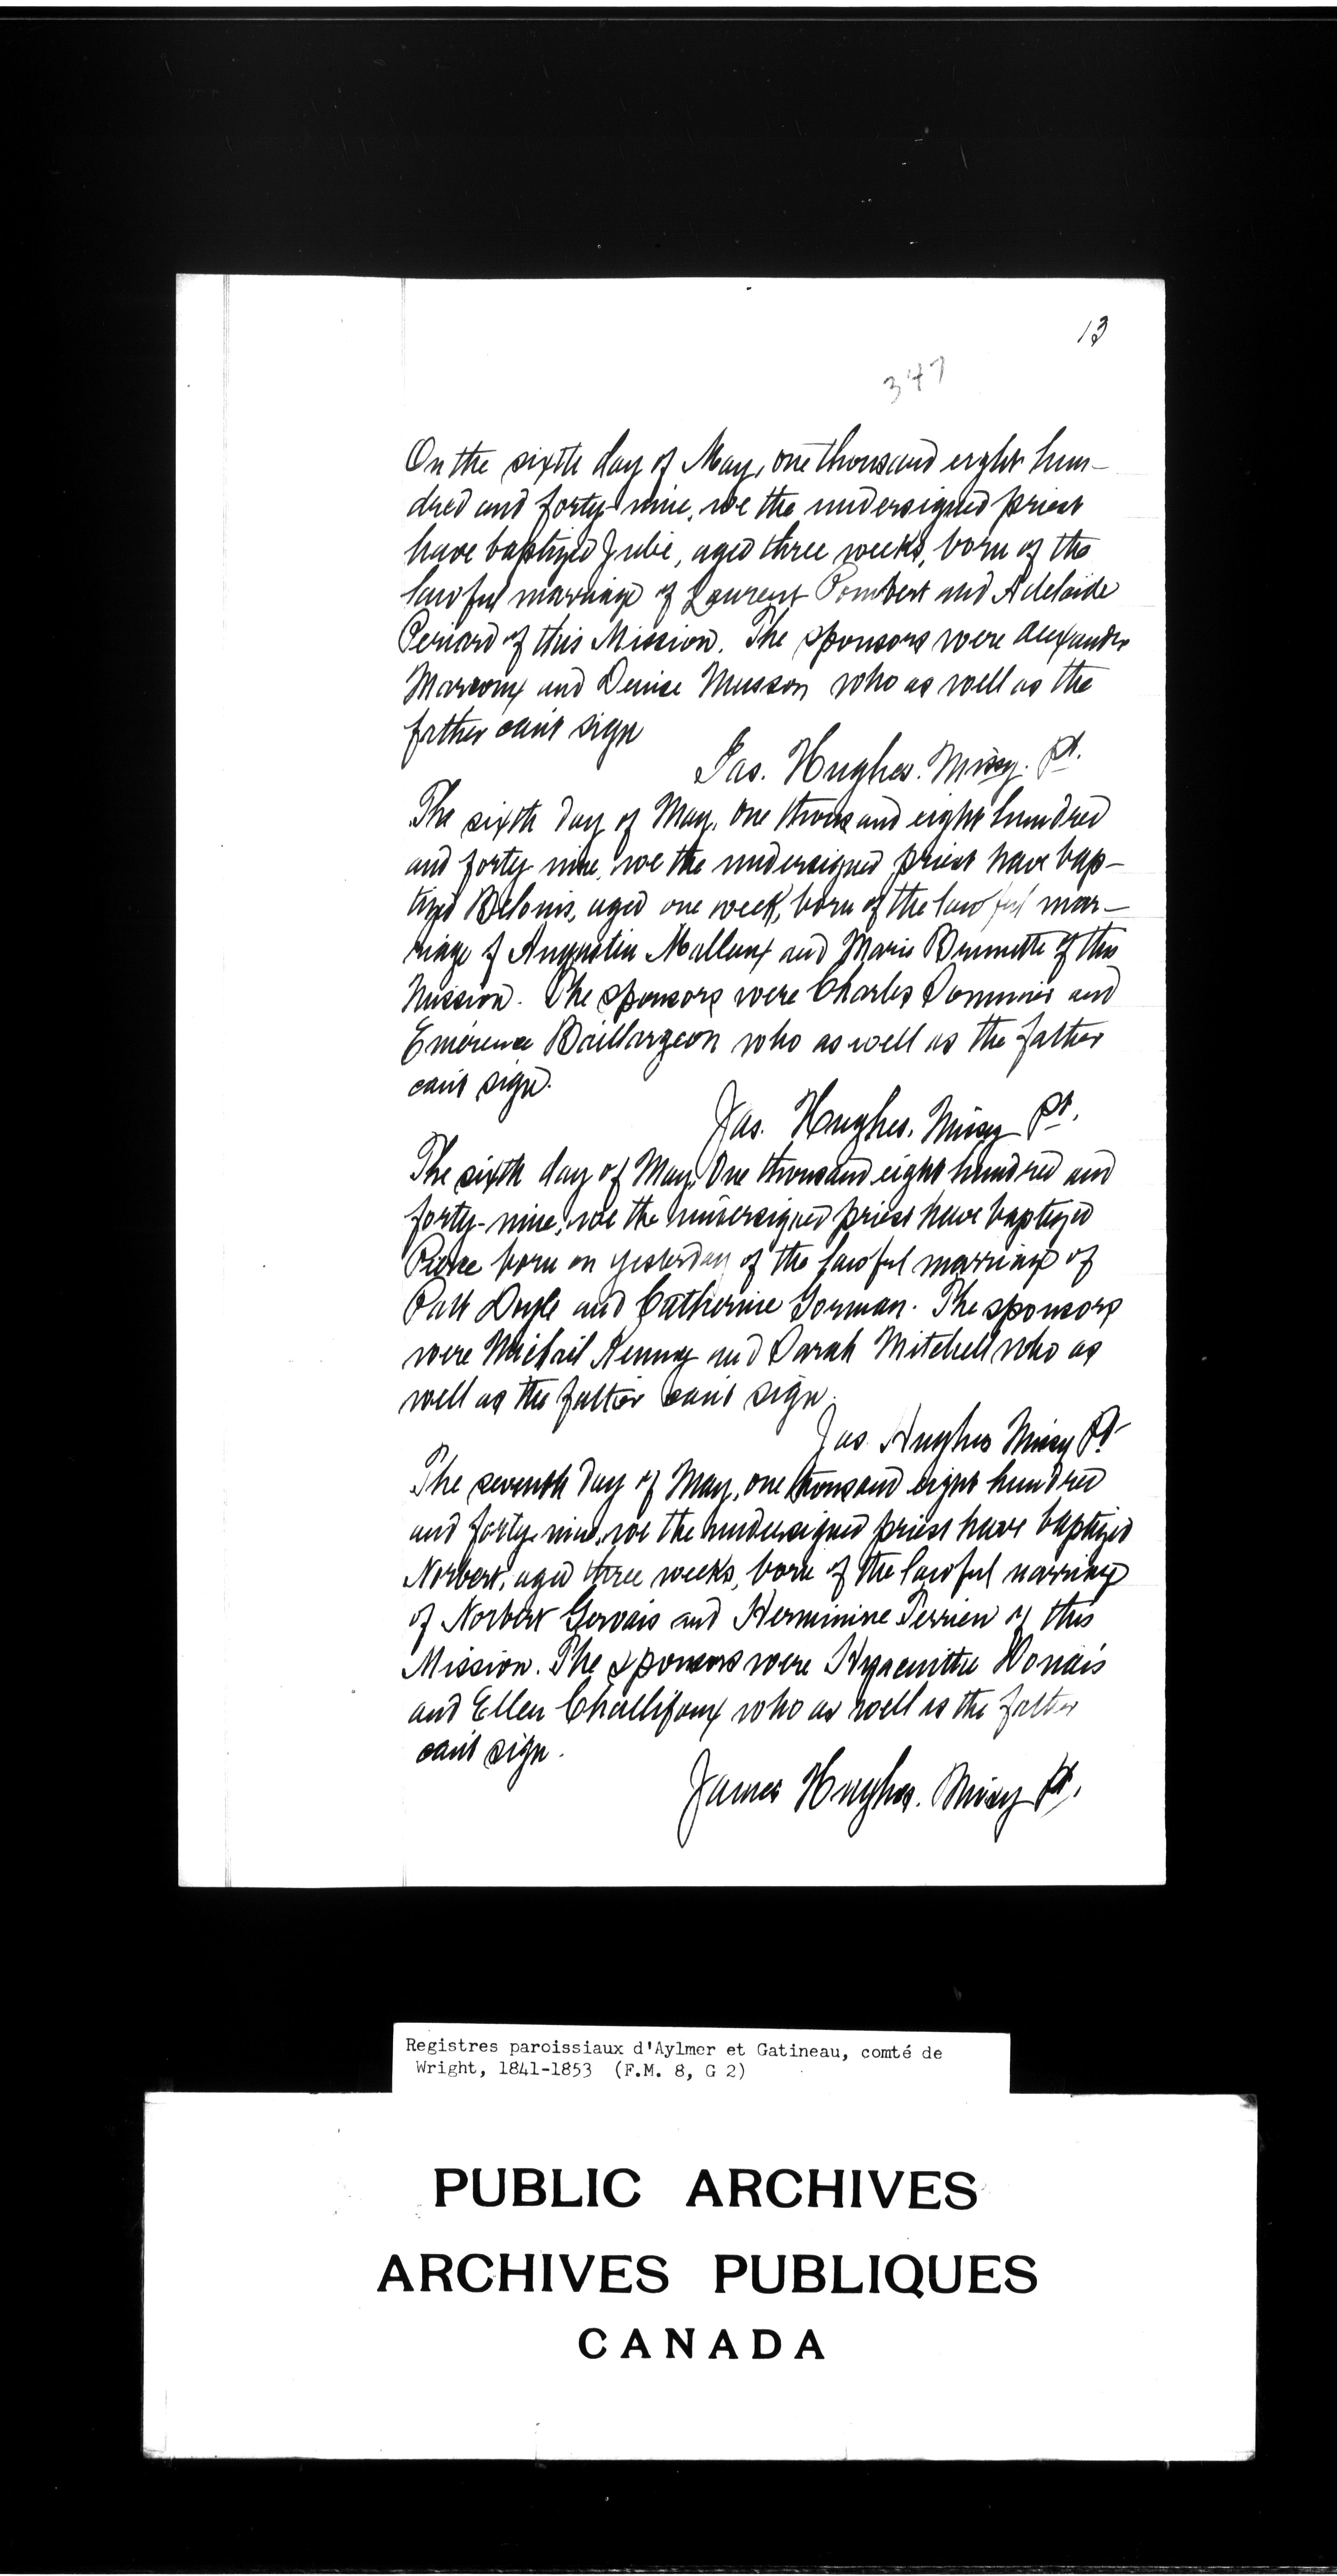 13
347
On the sixth day of May, one thousand eight hun-
dred and forty-nine, we the undersigned priest
have baptized Julie, aged three weeks, born of the
lawful marriage of Laurent Pombert and Adelaide
Periard of this Mission. The sponsors were Alexander
Marcoux and Denise Musson who as well as the
father can't sign
Jas. Hughes. Missy. Pt.
The sixth day of May, one thousand eight hundred
and forty-nine, we the undersigned priest have bap-
tized Belonis, aged one week, born of the lawful mar-
riage of Augustin Malleux and Marie Brunette of this
Mission. The sponsors were Charles and
Emérence Baillargeon who as well as the father
can't sign.
Jas. Hughes. Missy Pt.
The sixth day of May, One thousand eight hundred and
forty-nine, we the undersigned priest have baptized
Pierce born on yesterday of the lawful marriage of
Patt Doyle and Catherine Gorman. The sponsors
were Michail Kenny and Sarah Mitchell who as
well as the father can't sign.
Jas. Hughes Missy Pt.
The seventh day of May, one thousand eight hundred
and forty-nine, we the undersigned priest have baptized
Norbert, aged three weeks, born of the lawful marriage
of Norbert Gervais and Herminine Perrien of this
Mission. The sponsors were Hyacinthe
and Ellen Challifoux who as well as the father
can't sign.
James Hughes. Missy Pt.
Registres paroissiaux d'Aylmer et Gatineau, comté de
Wright, 1841-1853 (F.M. 8, G 2)
PUBLIC ARCHIVES
ARCHIVES PUBLIQUES
CANADA